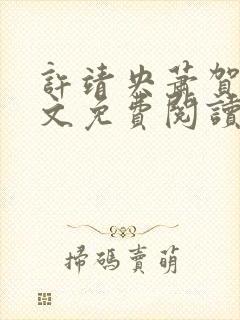 許靖央蕭賀
文免費閱讀
掃碼賣萌